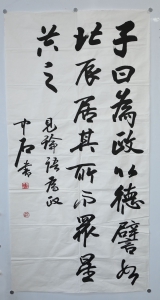 子曰為政以德譬如
北辰居其所而眾星
共之
見論語為政
中石書